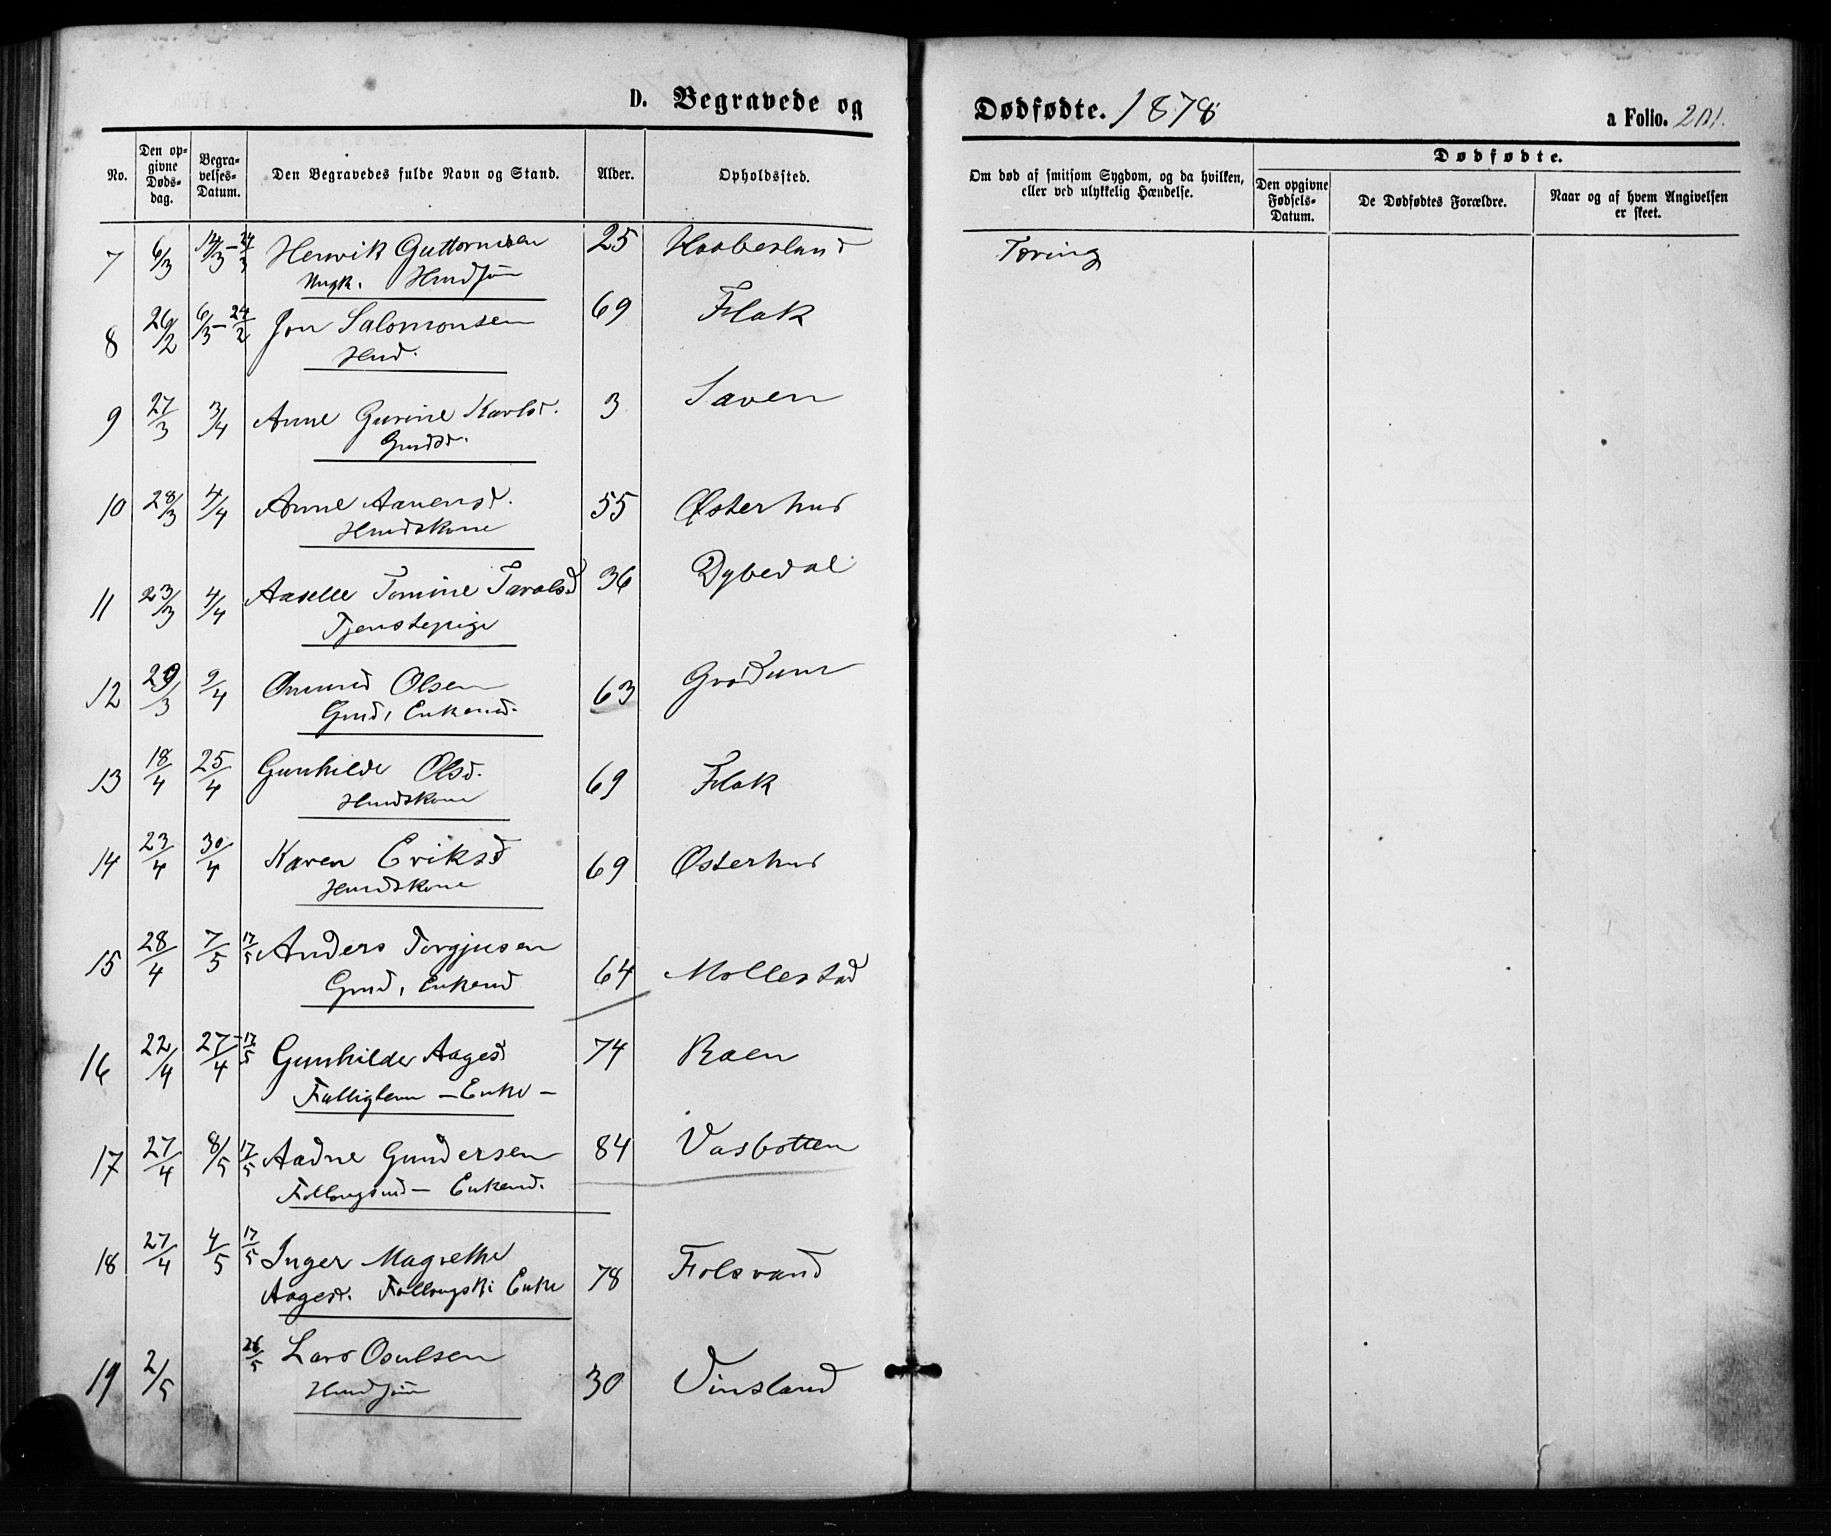 D. Begravede og
Dødfødte. 1878
a Folio. 201.
No.
Den opgivne Dødsdag.
Begravelses-Datum.
Den Begravedes fulde Navn og Stand.
Alder.
Opholdssted.
Om død af smitsom Sygdom, og da hvilken, eller ved ulykkelig Hændelse.
Dødfødte.
Den opgivne Fødsels-Datum.
De Dødfødtes Forældre.
Naar og af hvem Angivelsen er skeet.
7 6/3 14/3 - 24/3 Henrik Guttormsen 25 Haabesland Tæring
Ungk.
8 26/2 6/3 - 24/2 Jon Salomonsen 69 Flak
Hmd.
9 27/3 3/4 Anne Gurine Karlsd. 3 Saven
Gmdsd.
10 28/3 4/4 Anne Aanensd. 55 Østerhus
Hmdskone
11 23/3 4/4 Aaselle Tomine Taralsd 36 Dybedal
Tjenstepige
12 29/3 9/4 Omund Olsen 63 Grødum
Gmd, Enkemd.
13 18/4 25/4 Gunhilde Olsd. 69 Flak
Hmdskone
14 23/4 30/4 Karen Eriksd 69 Østerhus
Hmdskone
15 28/4 7/5 17/5 Anders Torgjusen 64 Mollestad
Gmd, Enkemd
16 22/4 27/4 - 17/5 Gunhilde Aagesd 74 Raen
Fattiglem - Enke -
17 27/4 8/5 17/5 Aadne Gundersen 84 Vasbotten
Enkemd.
18 27/4 4/5 17/5 Inger Magrethe
Aagesd. Enke 78 Folsvand
19 2/5 26/5 Lars Osulsen 30 Vinsland